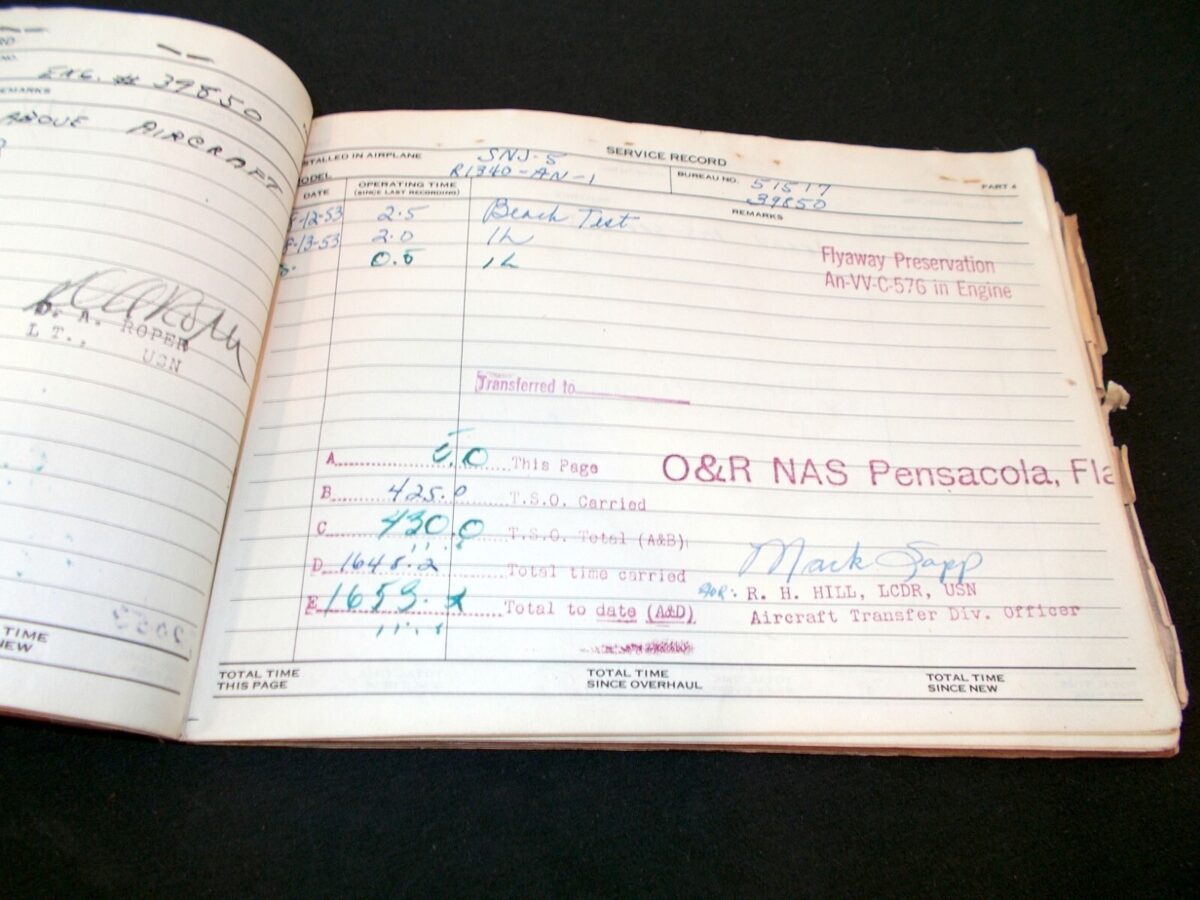 ENG. # 39850
REMARKS
ABOVE AIRCRAFT
D. A. ROPER
LT., USN
TIME
NEW
SERVICE RECORD
STALLED IN AIRPLANE SNJ-5
BUREAU NO. 51517
PART 4
ODEL R1340-AN-1
39850
DATE
OPERATING TIME
(SINCE LAST RECORDING)
REMARKS
-12-53 2.5 Bench Test
-13-53 2.0 1L
0.5 1L
Flyaway Preservation
An-VV-C-576 in Engine
Transferred to
A 5.0 This Page
O&R NAS Pensacola, Fla
B 425.0 T.S.O. Carried
C 430.0 T.S.O. Total (A&B)
D 1648.2 Total time carried
Mark Sapp
FOR: R. H. HILL, LCDR, USN
E 1653.2 Total to date (A&D)
Aircraft Transfer Div. Officer
TOTAL TIME
THIS PAGE
TOTAL TIME
SINCE OVERHAUL
TOTAL TIME
SINCE NEW